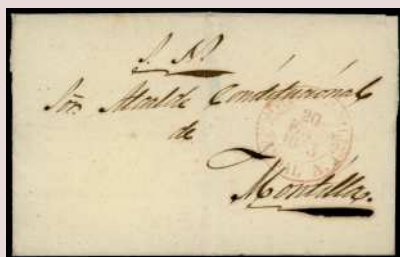 S. N.
Sor. Alcalde Constitucional
de
Montilla.
20